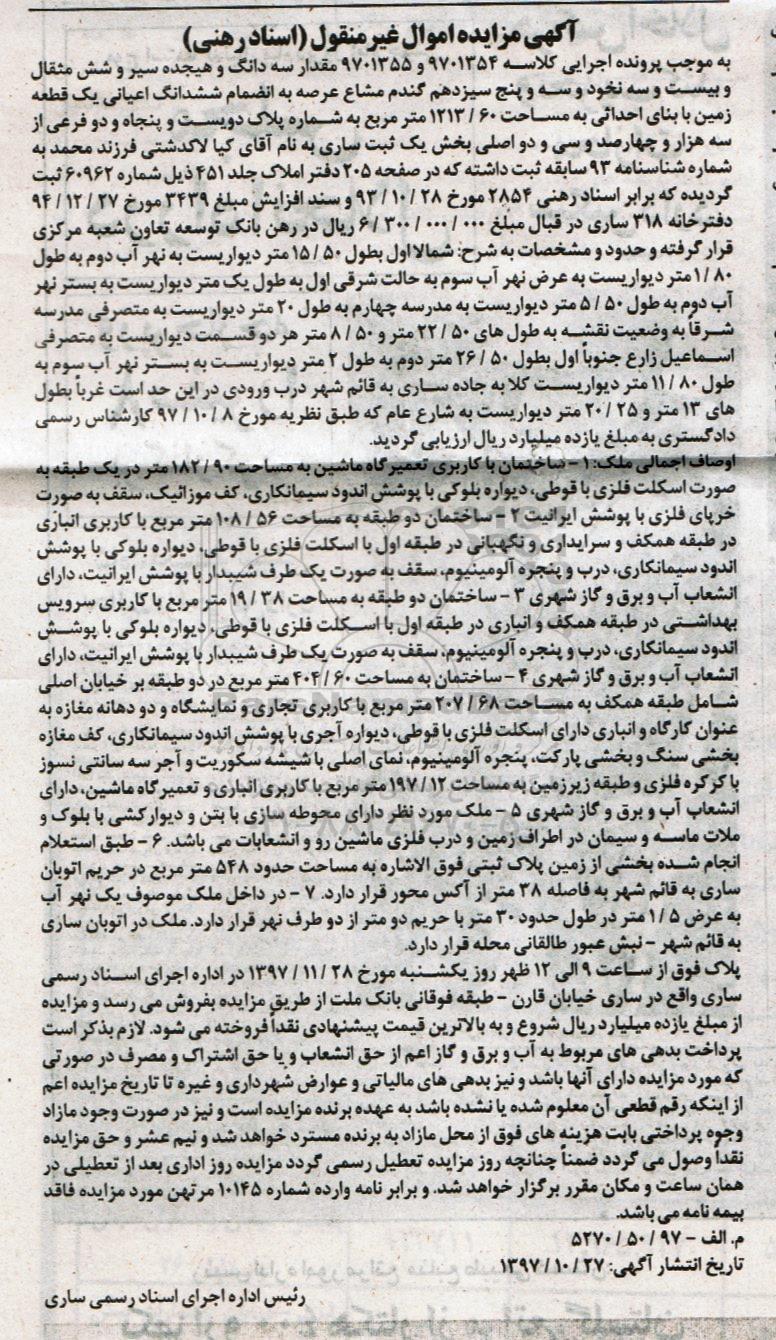 آگهی مزایده اموال غیر منقول (اسناد رهنی)
به موجب پرونده اجرایی کلاسه ۹۷۰۱۳۵۴ و ۹۷۰۱۳۵۵ مقدار سه دانگ و هیجده سیر و شش مثقال
و بیست و سه نخود و سه و پنج سیزدهم گندم مشاع عرصه به انضمام ششدانگ اعیانی یک قطعه
زمین با بنای احداثی به مساحت ۶۰ / ۱۲۱۳ متر مربع به شماره پلاک دویست و پنجاه و دو فرعی از
سه هزار و چهارصد و سی و دو اصلی بخش یک ثبت ساری به نام آقای کیا لاکدشتی فرزند محمد به
شماره شناسنامه ۹۳ سابقه ثبت داشته که در صفحه ۲۰۵ دفتر املاک جلد ۴۵۱ ذیل شماره ۶۰۹۶۲ ثبت
گردیده که برابر اسناد رهنی ۲۸۵۴ مورخ ۲۸ / ۱۰ / ۹۳ و سند افزایش مبلغ ۳۴۳۹ مورخ ۲۷ / ۱۲ / ۹۴
دفترخانه ۳۱۸ ساری در قبال مبلغ ۰۰۰ / ۰۰۰ / ۳۰۰ / ۶ ریال در رهن بانک توسعه تعاون شعبه مرکزی
قرار گرفته و حدود و مشخصات به شرح: شمالا اول بطول ۵۰ / ۱۵ متر دیواریست به نهر آب دوم به طول
۸۰ / ۱ متر دیواریست به عرض نهر آب سوم به حالت شرقی اول به طول یک متر دیواریست به بستر نهر
آب دوم به طول ۵۰ / ۵ متر دیواریست به مدرسه چهارم به طول ۲۰ متر دیواریست به متصرفی مدرسه
شرقاً به وضعیت نقشه به طول های ۵۰ / ۲۲ متر و ۵۰ / ۸ متر هر دو قسمت دیواریست به متصرفی
اسماعیل زارع جنوباً اول بطول ۵۰ / ۲۶ متر دوم به طول ۲ متر دیواریست به بستر نهر آب سوم به
طول ۸۰ / ۱۱ متر دیواریست کلا به جاده ساری به قائم شهر درب ورودی در این حد است غرباً بطول
های ۱۳ متر و ۲۵ / ۲۰ متر دیواریست به شارع عام که طبق نظریه مورخ ۸ / ۱۰ / ۹۷ کارشناس رسمی
دادگستری به مبلغ یازده میلیارد ریال ارزیابی گردید.
اوصاف اجمالی ملک: ۱ – ساختمان با کاربری تعمیرگاه ماشین به مساحت ۹۰ / ۱۸۲ متر در یک طبقه به
صورت اسکلت فلزی با قوطی، دیواره بلوکی با پوشش اندود سیمانکاری، کف موزائیک، سقف به صورت
خرپای فلزی با پوشش ایرانیت ۲ – ساختمان دو طبقه به مساحت ۵۶ / ۱۰۸ متر مربع با کاربری انباری
در طبقه همکف و سرایداری و نگهبانی در طبقه اول با اسکلت فلزی با قوطی، دیواره بلوکی با پوشش
اندود سیمانکاری، درب و پنجره آلومینیوم، سقف به صورت یک طرف شیبدار با پوشش ایرانیت، دارای
انشعاب آب و برق و گاز شهری ۳ – ساختمان دو طبقه به مساحت ۳۸ / ۱۹ متر مربع با کاربری سرویس
بهداشتی در طبقه همکف و انباری در طبقه اول با اسکلت فلزی با قوطی، دیواره بلوکی با پوشش
اندود سیمانکاری، درب و پنجره آلومینیوم، سقف به صورت یک طرف شیبدار با پوشش ایرانیت، دارای
انشعاب آب و برق و گاز شهری ۴ – ساختمان به مساحت ۶۰ / ۴۰۴ متر مربع در دو طبقه بر خیابان اصلی
شامل طبقه همکف به مساحت ۶۸ / ۲۰۷ متر مربع با کاربری تجاری و نمایشگاه و دو دهانه مغازه به
عنوان کارگاه و انباری دارای اسکلت فلزی با قوطی، دیواره آجری با پوشش اندود سیمانکاری، کف مغازه
بخشی سنگ و بخشی پارکت، پنجره آلومینیوم، نمای اصلی با شیشه سکوریت و آجر سه سانتی نسوز
با کرکره فلزی و طبقه زیرزمین به مساحت ۱۲ / ۱۹۷ متر مربع با کاربری انباری و تعمیرگاه ماشین، دارای
انشعاب آب و برق و گاز شهری ۵ – ملک مورد نظر دارای محوطه سازی با بتن و دیوارکشی با بلوک و
ملات ماسه و سیمان در اطراف زمین و درب فلزی ماشین رو و انشعابات می باشد. ۶ – طبق استعلام
انجام شده بخشی از زمین پلاک ثبتی فوق الاشاره به مساحت حدود ۵۴۸ متر مربع در حریم اتوبان
ساری به قائم شهر به فاصله ۳۸ متر از آکس محور قرار دارد. ۷ – در داخل ملک موصوف یک نهر آب
به عرض ۵ / ۱ متر در طول حدود ۳۰ متر با حریم دو متر از دو طرف نهر قرار دارد. ملک در اتوبان ساری
به قائم شهر – نبش عبور طالقانی محله قرار دارد.
پلاک فوق از ساعت ۹ الی ۱۲ ظهر روز یکشنبه مورخ ۲۸ / ۱۱ / ۱۳۹۷ در اداره اجرای اسناد رسمی
ساری واقع در ساری خیابان قارن – طبقه فوقانی بانک ملت از طریق مزایده بفروش می رسد و مزایده
از مبلغ یازده میلیارد ریال شروع و به بالاترین قیمت پیشنهادی نقداً فروخته می شود. لازم بذکر است
پرداخت بدهی های مربوط به آب و برق و گاز اعم از حق انشعاب و یا حق اشتراک و مصرف در صورتی
که مورد مزایده دارای آنها باشد و نیز بدهی های مالیاتی و عوارض شهرداری و غیره تا تاریخ مزایده اعم
از اینکه رقم قطعی آن معلوم شده یا نشده باشد به عهده برنده مزایده است و نیز در صورت وجود مازاد
وجوه پرداختی بابت هزینه های فوق از محل مازاد به برنده مسترد خواهد شد و نیم عشر و حق مزایده
نقداً وصول می گردد ضمناً چنانچه روز مزایده تعطیل رسمی گردد مزایده روز اداری بعد از تعطیلی در
همان ساعت و مکان مقرر برگزار خواهد شد. و برابر نامه وارده شماره ۱۰۱۴۵ مرتهن مورد مزایده فاقد
بیمه نامه می باشد.
م. الف – ۹۷ / ۵۰ / ۵۲۷۰
تاریخ انتشار آگهی: ۲۷ / ۱۰ / ۱۳۹۷
رئیس اداره اجرای اسناد رسمی ساری